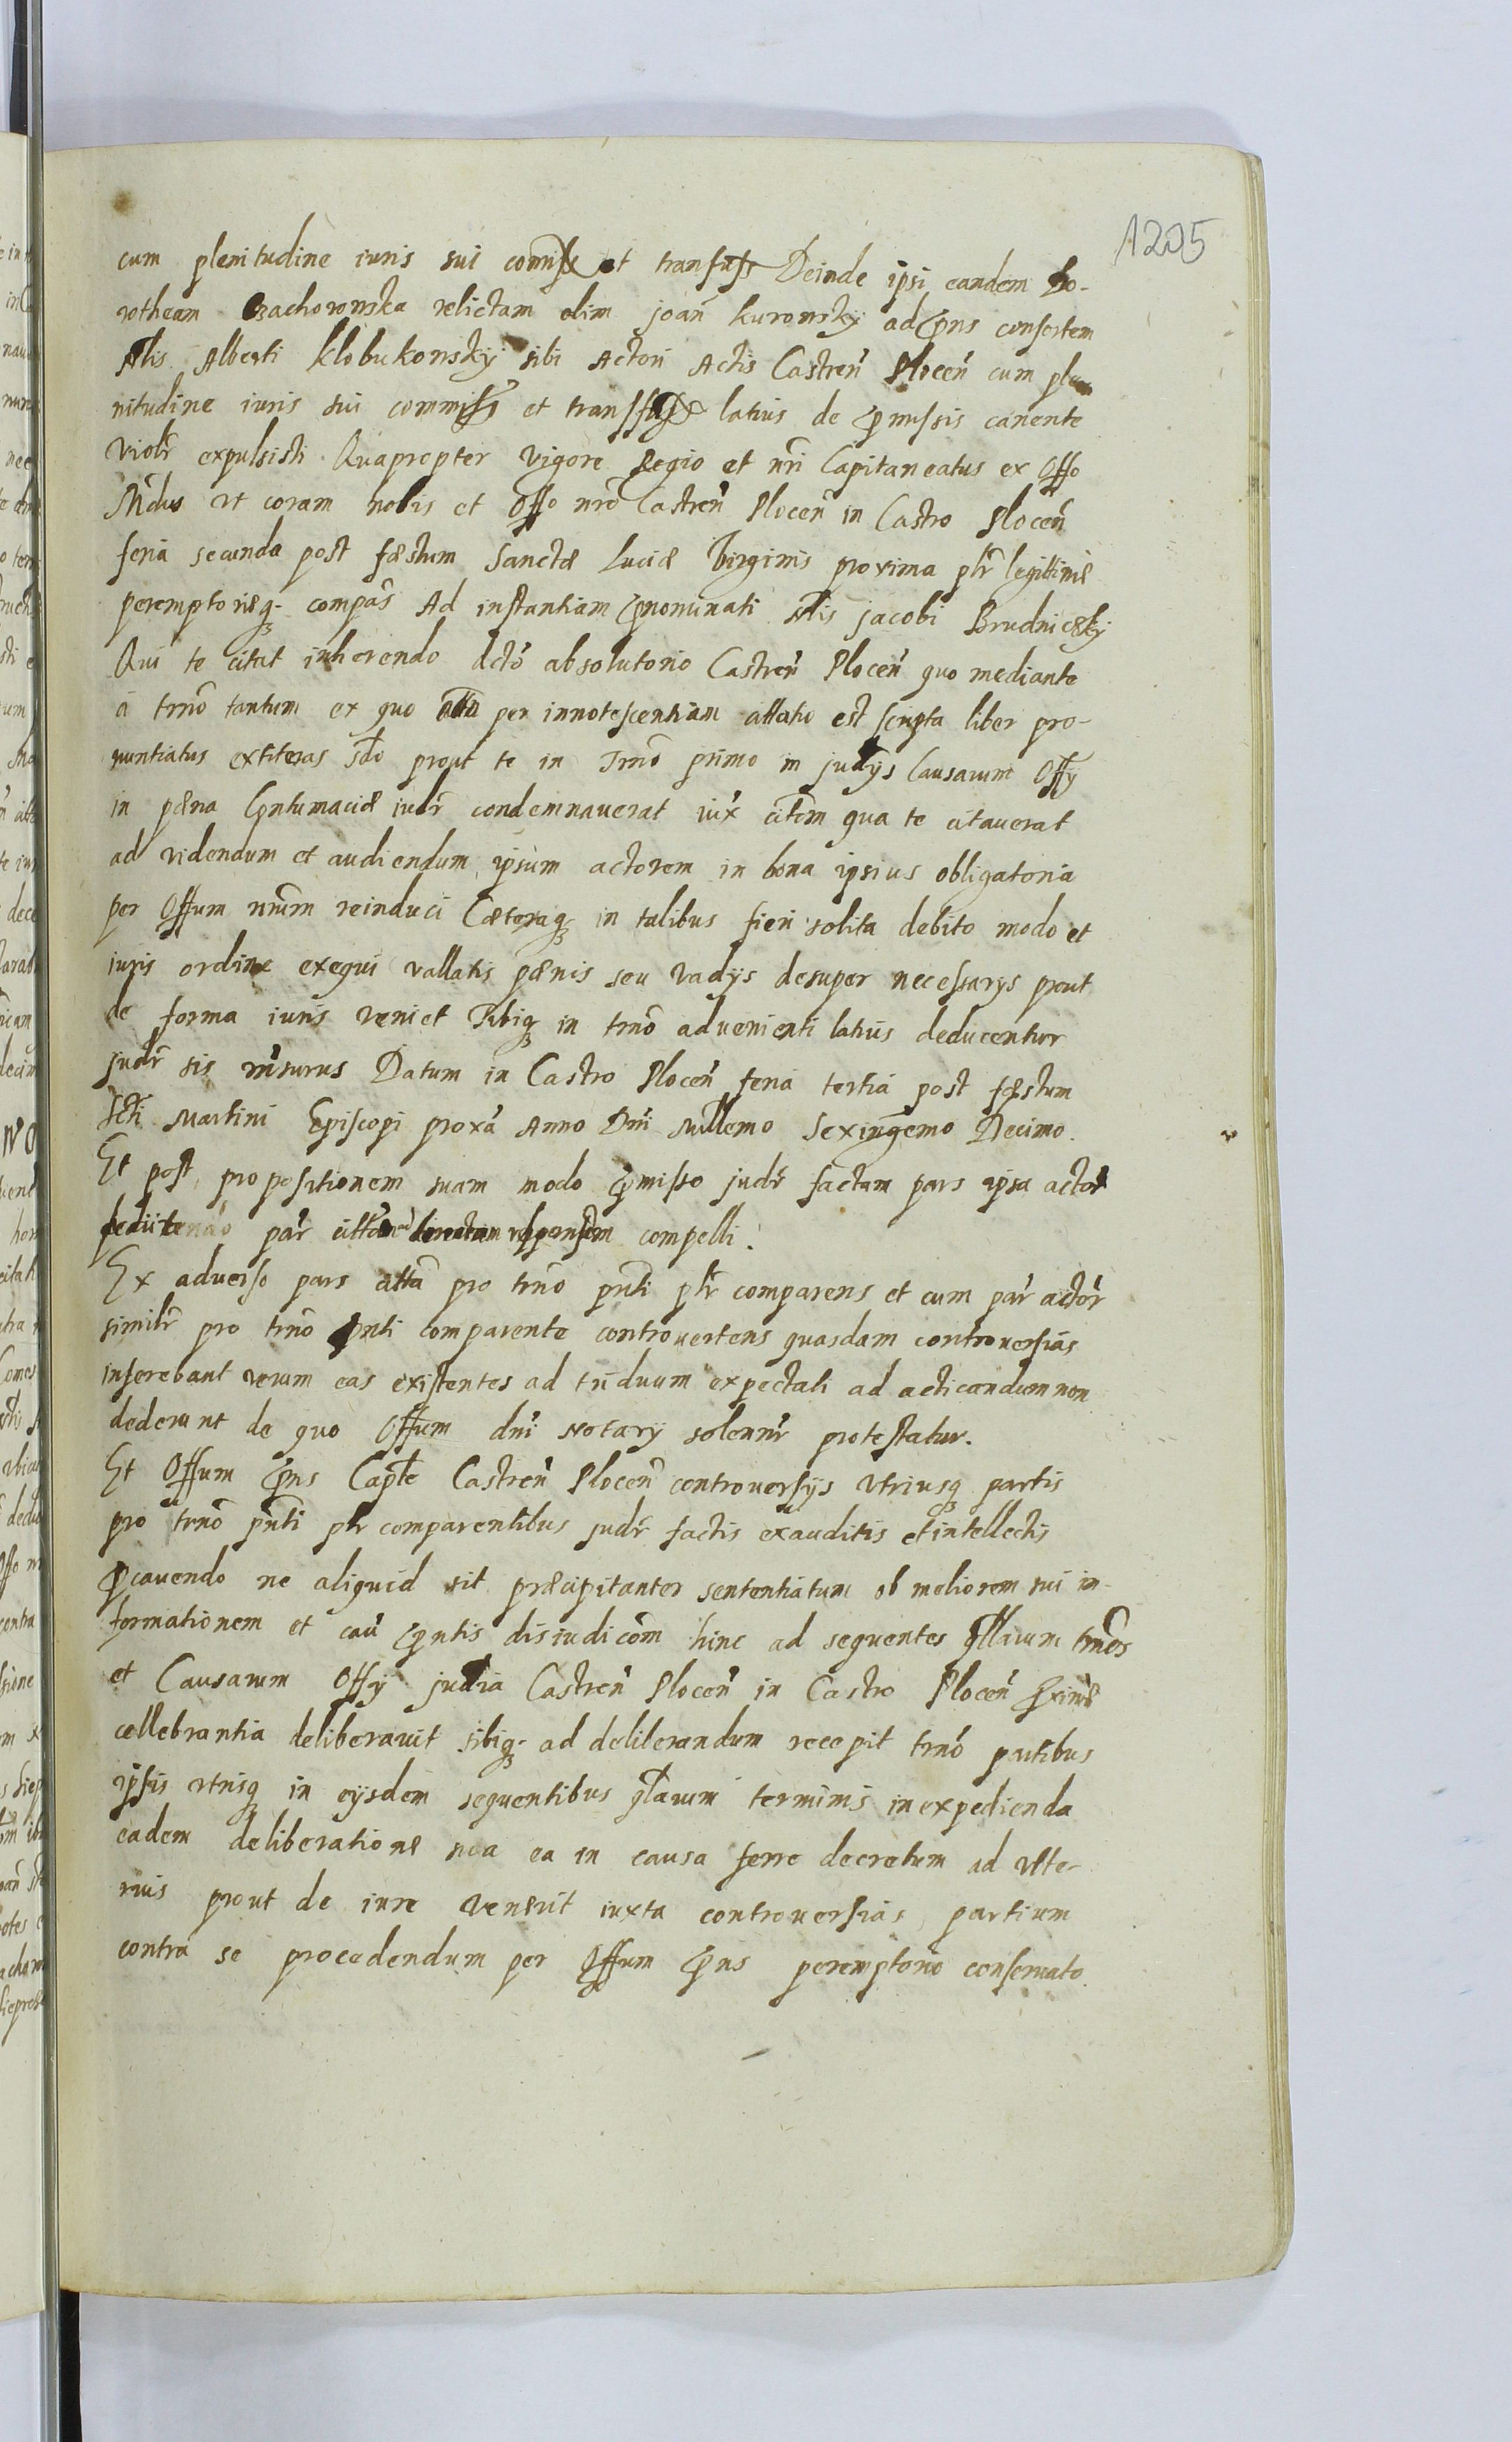 1205
cum plenitudine iuris sui comiss et transfuss Deinde ipsi eandem Do-
rotheam Czachorowska relictam olim Joan̄ Kurowsky ad p̄ns consortem
Nlis Alberti Klobukowsky sibi Actori Actis Castren̄ Plocen̄ cum ple
nitudine iuris sui commiss et transfuss latius de p̄missis canente
violr̄ expulsisti Quapropter vigore Regio et nr̄i Capitaneatus ex Offo
Mn̄dus ut coram nobis et Offo nrō Castren̄ Plocen̄ in Castro Plocen̄
feria secunda post fæstum Sanctæ Luciæ Virginis proxima plr̄ legittimæ
peremptoriæq3 compās Ad instantiam p̄nominati Nlis Jacobi Brudnicky
Qui te citat inherendo dctō absolutorio Castren̄ Plocen̄ quo mediante
a trnō tantum ex quo per innotescentiam allatio est scripta liber pro-
nuntiatus extiteras Idō prout te in Trnō primo in judijs Causarum Offÿ
in pæna Contumaciæ iudr̄ condemnauerat iux̄ citōm qua te citauerat
ad videndum et audiendum ipsum actorem in bona ipsius obligatoria
per Offum nr̄um reinduci Cæteraq3 in talibus fieri solita debito modo et
iuris ordine exequi vallatis pænis seu vadijs desuper necessarijs prout
de forma iuris veniet Tibiq3 in trnō aduenienti latius deducentur
Judr̄ sis rn̄surus Datum in Castro Plocen̄ feria tertia post fæstum
Scti Martini Episcopi proxā Anno Dn̄i Millemo Sexingēmo Decimo.
Et post propositionem suam modo p̄misso judr̄ factam pars ipsa actor
par̄ citt̄ directam responsem compelli.
Ex aduerso pars citt̄a pro trnō pn̄ti plr̄ comparens et cum par̄ actōr
similr̄ pro trnō pn̄ti comparente controuertens quasdam controuersias
inferebant verum eas existentes ad triduum expectati ad acticandum non
dederunt de quo Offum dn̄i Notarÿ solennr̄ protestatur.
Et Offum p̄ns Capt̄le Castren̄ Plocen̄ controuersijs vtriusq3 partis
pro trnō pn̄ti plr comparentibus judr̄ factis exauditis et intellectis
p̄cauendo ne aliquid sit præcipitanter sententiatum ob meliorem sui in-
formationem et cau p̄ntis disiudicōm hinc ad sequentes qlłarum trnōs
et Causarum Offÿ judia Castren̄ Plocen̄ in Castro Plocen̄ p̄ximæ
cellebrantia deliberauit sibiq3 ad deliberandum recepit trnō partibus
ipsis vtrisq3 in eijsdem sequentibus qłarum terminis in expedienda
eadem deliberationæ sua ea in causa ferre decretum ad vlte-
rius prout de iure venerit iuxta controuersias partium
contra se procedendum per Offum p̄ns peremptorio conseruato.